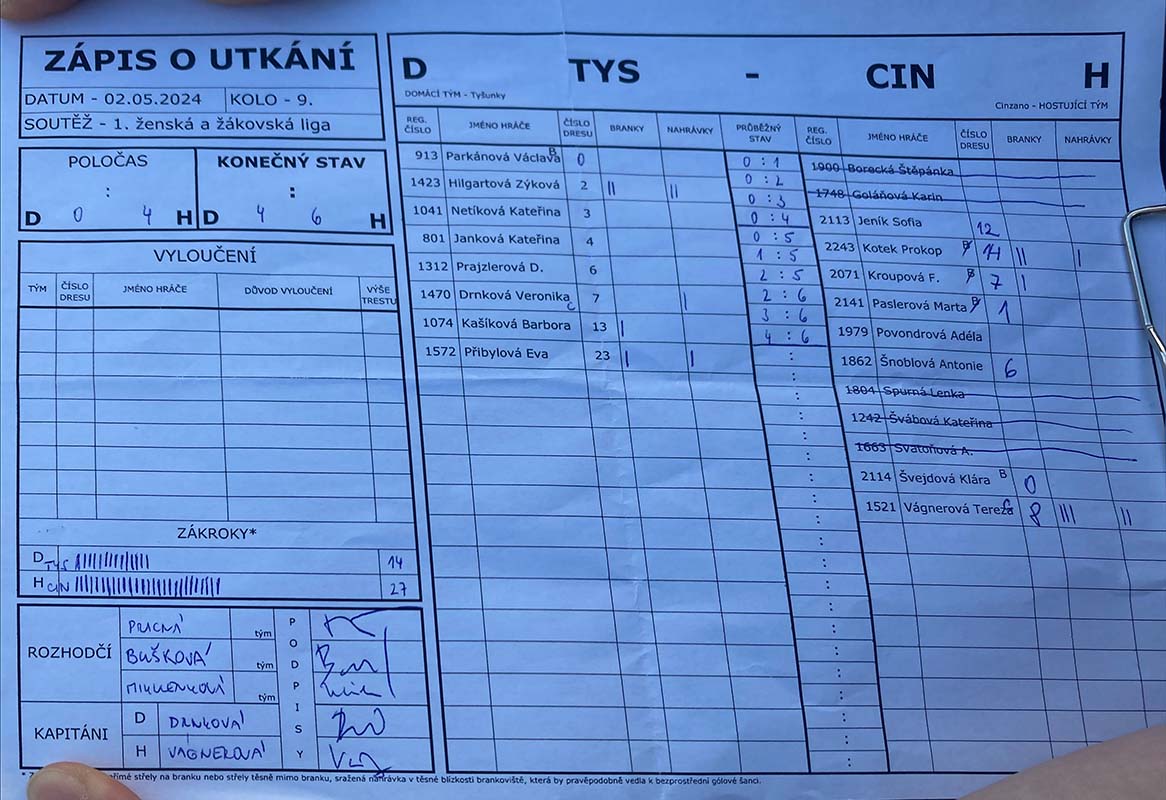 ZÁPIS O UTKÁNÍ
DATUM - 02.05.2024 KOLO - 9.
SOUTĚŽ - 1. ženská a žákovská liga
POLOČAS KONEČNÝ STAV
: :
D 0 4 H D 4 6 H
VYLOUČENÍ
TÝM ČÍSLO DRESU JMÉNO HRÁČE DŮVOD VYLOUČENÍ VÝŠE TRESTU
ZÁKROKY*
D TYS 14
H CIN 27
ROZHODČÍ
PRACNÁ tým
BUŠKOVÁ tým
tým
PODPISY
KAPITÁNI
D DRNKOVÁ
H VÁGNEROVÁ
D TYS - CIN H
DOMÁCÍ TÝM - Tyšunky Cinzano - HOSTUJÍCÍ TÝM
REG. ČÍSLO JMÉNO HRÁČE ČÍSLO DRESU BRANKY NAHRÁVKY PRŮBĚŽNÝ STAV REG. ČÍSLO JMÉNO HRÁČE ČÍSLO DRESU BRANKY NAHRÁVKY
913 Parkánová Václava B 0
1423 Hilgartová Zýková 2 || ||
1041 Netíková Kateřina 3
801 Janková Kateřina 4
1312 Prajzlerová D. 6
1470 Drnková Veronika C 7 |
1074 Kašíková Barbora 13 |
1572 Přibylová Eva 23 | |
0 : 1
0 : 2
0 : 3
0 : 4
0 : 5
1 : 5
2 : 5
2 : 6
3 : 6
4 : 6
1900 Borecká Štěpánka
1748 Goláňová Karin
2113 Jeník Sofia 12
2243 Kotek Prokop 14 || |
2071 Kroupová F. 7 |
2141 Paslerová Marta 1
1979 Povondrová Adéla
1862 Šnoblová Antonie 6
1804 Spurná Lenka
1242 Švábová Kateřina
1663 Svatoňová A.
2114 Švejdová Klára B 0
1521 Vágnerová Tereza C 8 ||| ||
přímé střely na branku nebo střely těsně mimo branku, sražená nahrávka v těsné blízkosti brankoviště, která by pravěpodobně vedla k bezprostřední gólové šanci.